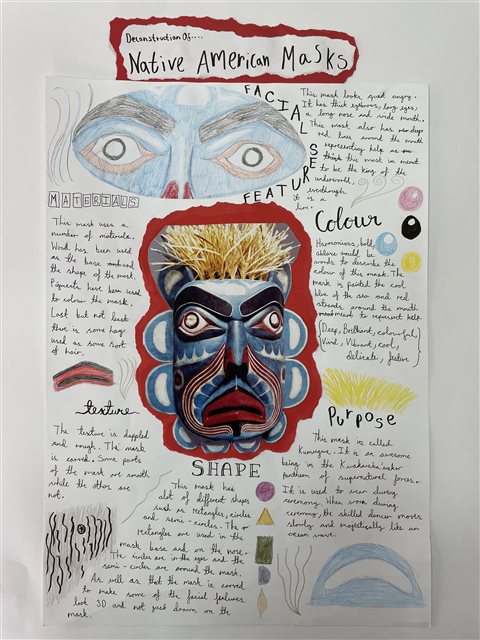 Deconstruction Of....
Native American Masks
FACIAL FEATURES
This mask looks quiet angry.
It has thick eyebrows, large eyes,
a long nose and wide mouth.
This mask also has deep
red lines around the mouth
representing kelp
think this mask is meant
to be the king of the
underworld,
eventhough
it is a
lion.
MATERIALS
This mask uses a
number of materials.
Wood has been used
as the base and
the shape of the mask.
Pigments have been used
to colour the mask.
Last but not least
there is some hay
used as some sort
of hair.
Colour
Harmonious, bold,
would be
words to describe the
colour of this mask. The
mask is painted the cool
blue of the sea and red
strands around the mouth
to represent kelp.
(Deep, Brilliant, colourful,
Vivid, Vibrant, cool,
delicate, festive)
texture
The texture is dappled
and rough. The mask
is carved. Some parts
of the mask are smooth
while the others are
not.
Purpose
This mask is called
Kumugwe. It is an awesome
being in the Kwakwaka'wakw
pantheon of supernatural forces.
It is used to wear during
ceremony. When worn during
ceremony, the skilled dancer moves
slowly and majestically like an
ocean wave.
SHAPE
This mask has
alot of different shapes
such as rectangles, circles
and semi-circles. The
rectangles are used in the
mask base and on the nose.
The circles are in the eyes and the
semi-circles are around the mask.
As well as that the mask is carved
to make some of the facial features
look 3D and not just drawn on the
mask.